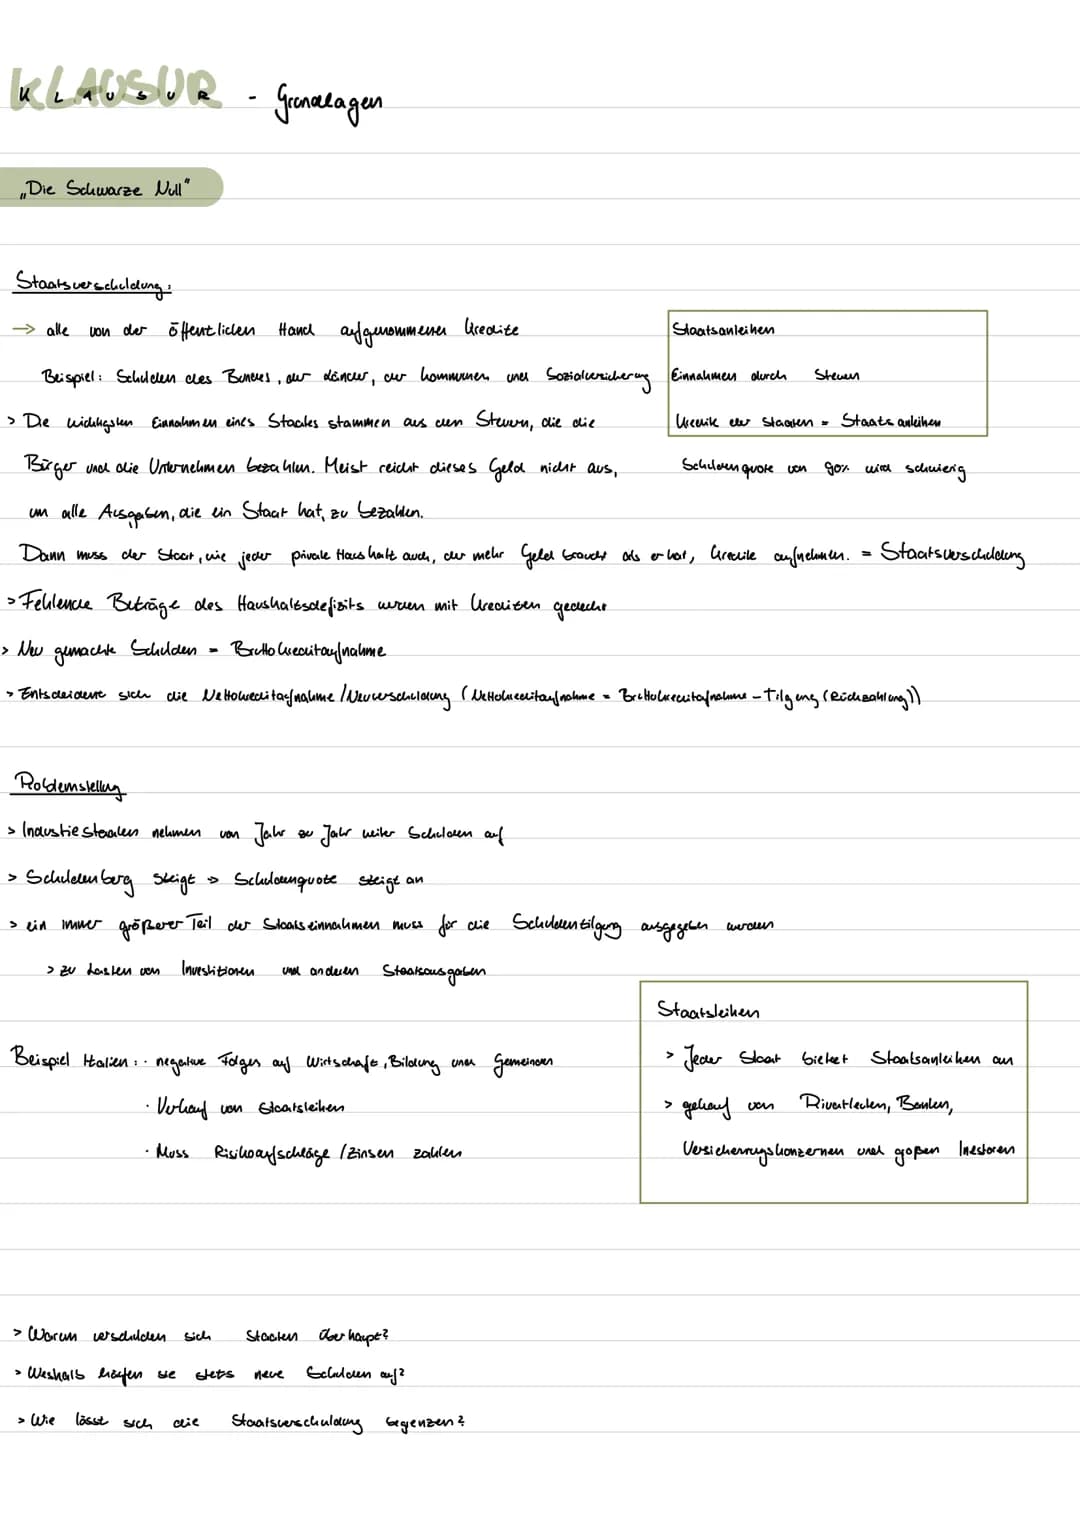 KLAUSUR - Grundlagen
„Die Schwarze Null"
Staatsverschuldung:
→ alle von der öffentlichen Hand aufgenommenen Kredite
Beispiel: Schulden des Bundes, der Länder, der Kommunen und Sozialversicherung
> Die wichtigsten Einnahmen eines Staates stammen aus den Steuern, die die
Bürger und die Unternehmen bezahlen. Meist reicht dieses Geld nicht aus,
um alle Ausgaben, die ein Staat hat, zu bezahlen.
Staatsanleihen
Einnahmen durch Steuern
Kredite der Staaten = Staatsanleihen
Schuldenquote von 90% wird schwierig
Dann muss der Staat, wie jeder private Haushalt auch, der mehr Geld braucht als er hat, Kredite aufnehmen. = Staatsverschuldung
> Fehlende Beträge des Haushaltsdefizits werden mit Krediten gedeckt
> Neu gemachte Schulden = Bruttokreditaufnahme
> Entscheidend sich die Nettokreditaufnahme / Neuverschuldung (Nettokreditaufnahme = Bruttokreditaufnahme - Tilgung (Rückzahlung))
Problemstellung
> Industiestaaten nehmen von Jahr zu Jahr weiter Schulden auf
> Schuldenberg steigt > Schuldenquote steigt an
> ein immer größerer Teil der Staatseinnahmen muss für die Schuldentilgung ausgegeben werden
> zu Lasten von Investitionen und anderen Staatsausgaben
Beispiel Italien: · negative Folgen auf Wirtschaft, Bildung und Gemeinden
· Verkauf von Staatsleihen
· Muss Risikoaufschläge / Zinsen zahlen
Staatsleihen
> Jeder Staat bietet Staatsanleihen an
> gekauf von Privatleuten, Banken,
Versicherungskonzernen und goßen Inestoren
> Warum verschulden sich Staaten überhaupt?
> Weshalb häufen sie stets neue Schulden auf?
> Wie lässt sich die Staatsverschuldung begenzen?